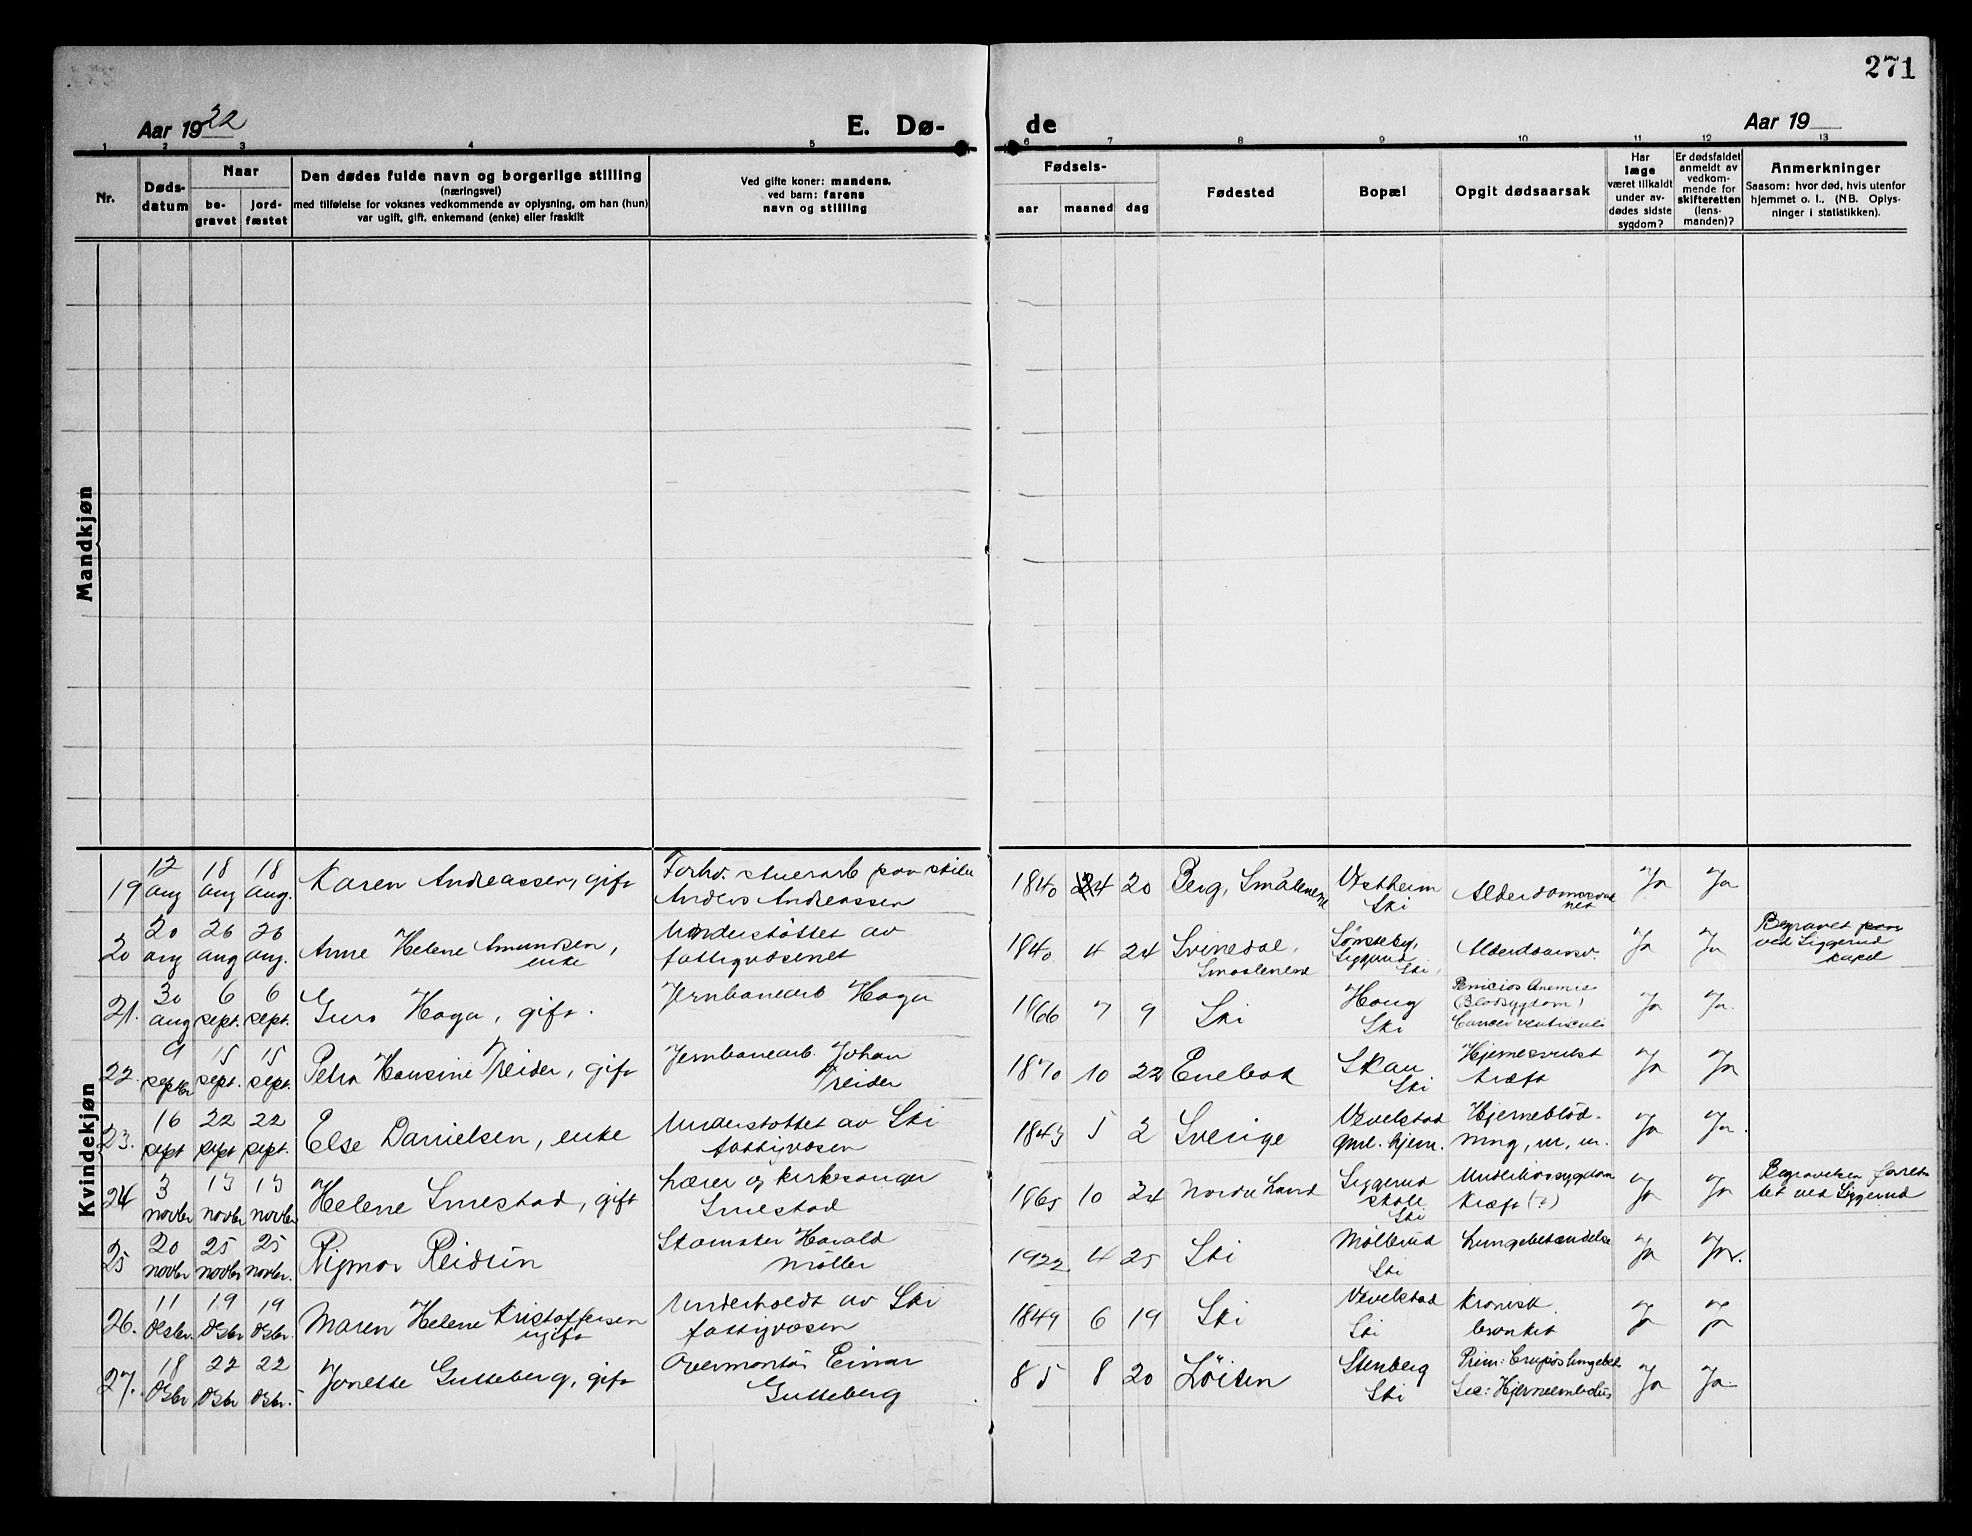 271
Aar 1922
E. Dø-
de
Aar 19
1 2 3 4 5 6 7 8 9 10 11 12 13
Nr.
Døds-
datum
Naar
be-
gravet
jord-
fæstet
Den dødes fulde navn og borgerlige stilling
(næringsvei)
med tilføielse for voksnes vedkommende av oplysning, om han (hun)
var ugift, gift, enkemand (enke) eller fraskilt
Ved gifte koner: mandens,
ved barn: farens
navn og stilling
Fødsels-
aar maaned dag
Fødested
Bopæl
Opgit dødsaarsak
Har
læge
været tilkaldt
under av-
dødes sidste
sygdom?
Er dødsfaldet
anmeldt av
vedkom-
mende for
skifteretten
(lens-
manden)?
Anmerkninger
Saasom: hvor død, hvis utenfor
hjemmet o. l.. (NB. Oplys-
ninger i statistikken).
Mandkjøn
Kvindekjøn
19 12 aug 18 aug 18 aug. Karen Andreassen, gift
Anders Andreassen
1840 4 20 Berg, Smålenene Vestheim Ski Ja Ja
20 20 aug 26 aug 26 aug. Anne Helene Amundsen, enke
Understøttet av
fattigvæsenet
1840 4 24 Svinedal, Smaalenene Siggerud Ski, Alderdomsv. Ja Ja
Begravet
ved Siggerud
kapel
21. 30 aug 6 sept. 6 sept. Guro Haga, gift.
Jernbanearb Haga
1866 7 9 Ski Haug Ski
Pernicios Anemie
(Blodsygdom)
Cancer ventriculi
Ja Ja.
22. 9 septbr 15 sept. 15 sept. Petra Hansine Treider, gift
Jernbanearb. Johan
Treider
1870 10 22 Enebak Skau Ski Hjernesvulst
kræft
Ja Ja
23. 16 sept 22 sept 22 sept. Else Danielsen, enke
Understøttet av Ski
fattigvæsen
1843 5 2 Sverige Vevelstad
gml. hjem.
Hjerneblød-
ning, m, m.
Ja Ja.
24 3 novbr 13 novbr 13 novbr Helene Smestad, gift
Lærer og kirkesanger
Smestad
1865 10 24 Nordre Land Siggerud
skole
Ski
Underlivssygdom
kræft (?)
Ja Ja
Begravelsen foret-
tet ved Siggerud
25 20 novbr 25 novbr 25 novbr. Rigmor Reidun
Harald
Møller
1922 4 25 Ski Møllerud
Ski
Lungebetændelse
Ja Ja.
26. 11 desbr. 19 desbr 19 desbr. Maren Helene Kristoffersen
ugift
Underholdt av Ski
fattigvæsen
1849 6 19 Ski Vevelstad
Ski
Kronisk.
bronkit
Ja Ja
27. 18 desbr 22 desbr 22 desbr. Jonette Gutteberg, gift
Overmontør Einar
Gutteberg
85 8 20 Løiten Stenberg
Ski
Prim: Crupøs lungebet.
Sec: Hjerneembolus
Ja Ja